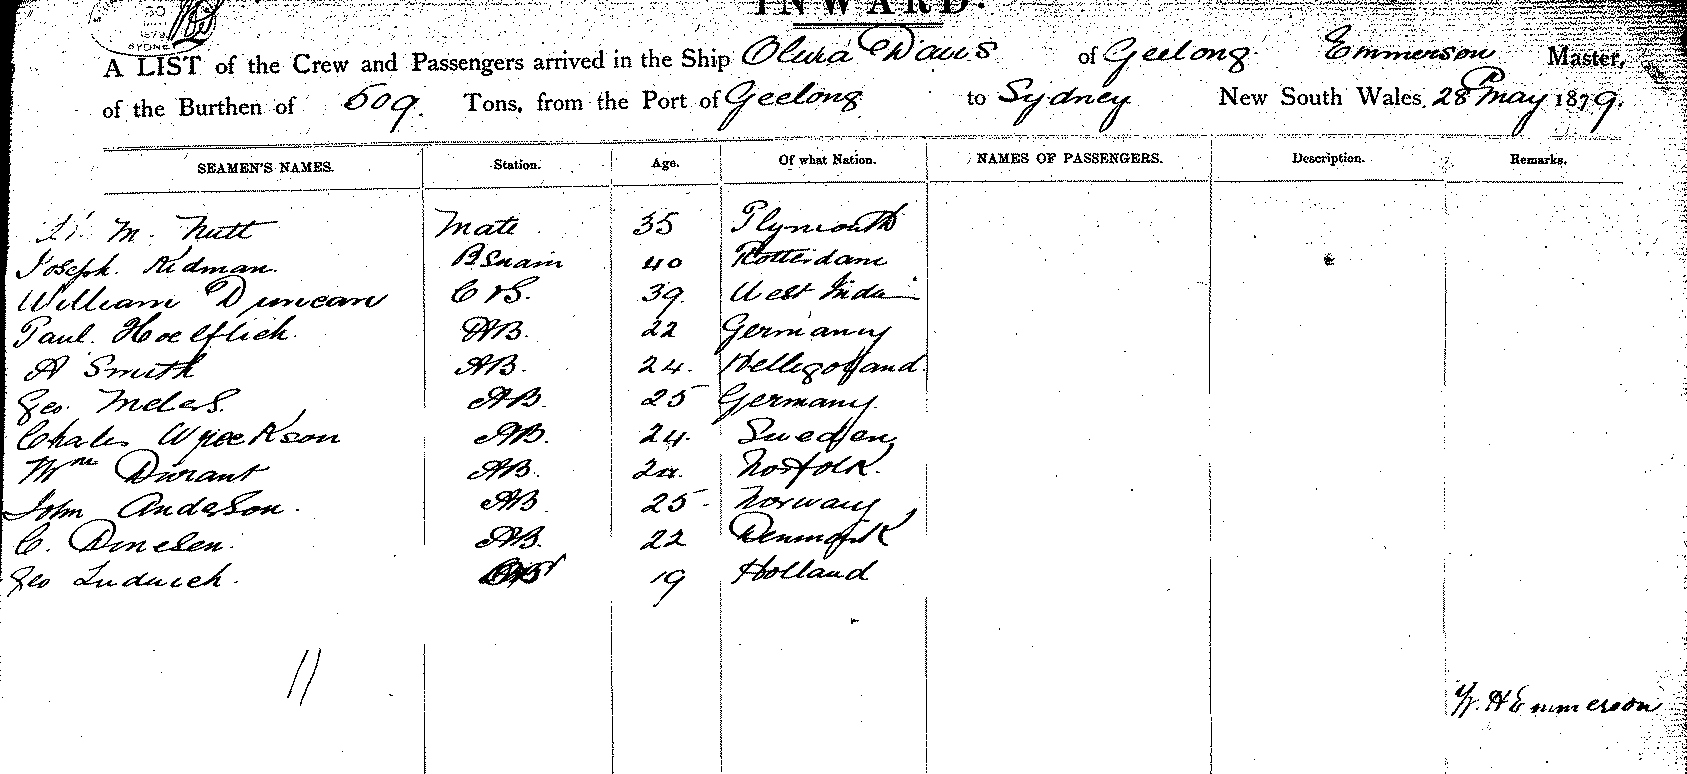 INWARD.
SYDNEY
A LIST of the Crew and Passengers arrived in the Ship Olivia Davis of Geelong Emmerson Master,
of the Burthen of 509. Tons, from the Port of Geelong to Sydney New South Wales, 28 May 1879.
SEAMEN'S NAMES. Station. Age. Of what Nation. NAMES OF PASSENGERS. Description. Remarks.
M. Nutt Mate 35 Plymouth
Joseph. Ridman. 40 Rotterdam
William Duncan C & S. 39 West India
Paul. Hoelflich. AB. 22 Germany
A Smith AB. 24. Helligoland.
Geo. AB. 25 Germany.
Charles AB. 24. Sweden
Wm Durant AB. Norfolk.
John Anderson. AB 25 Norway
C. AB. 22 Denmark
Geo Ludwich. 19 Holland
11
W. H Emmerson